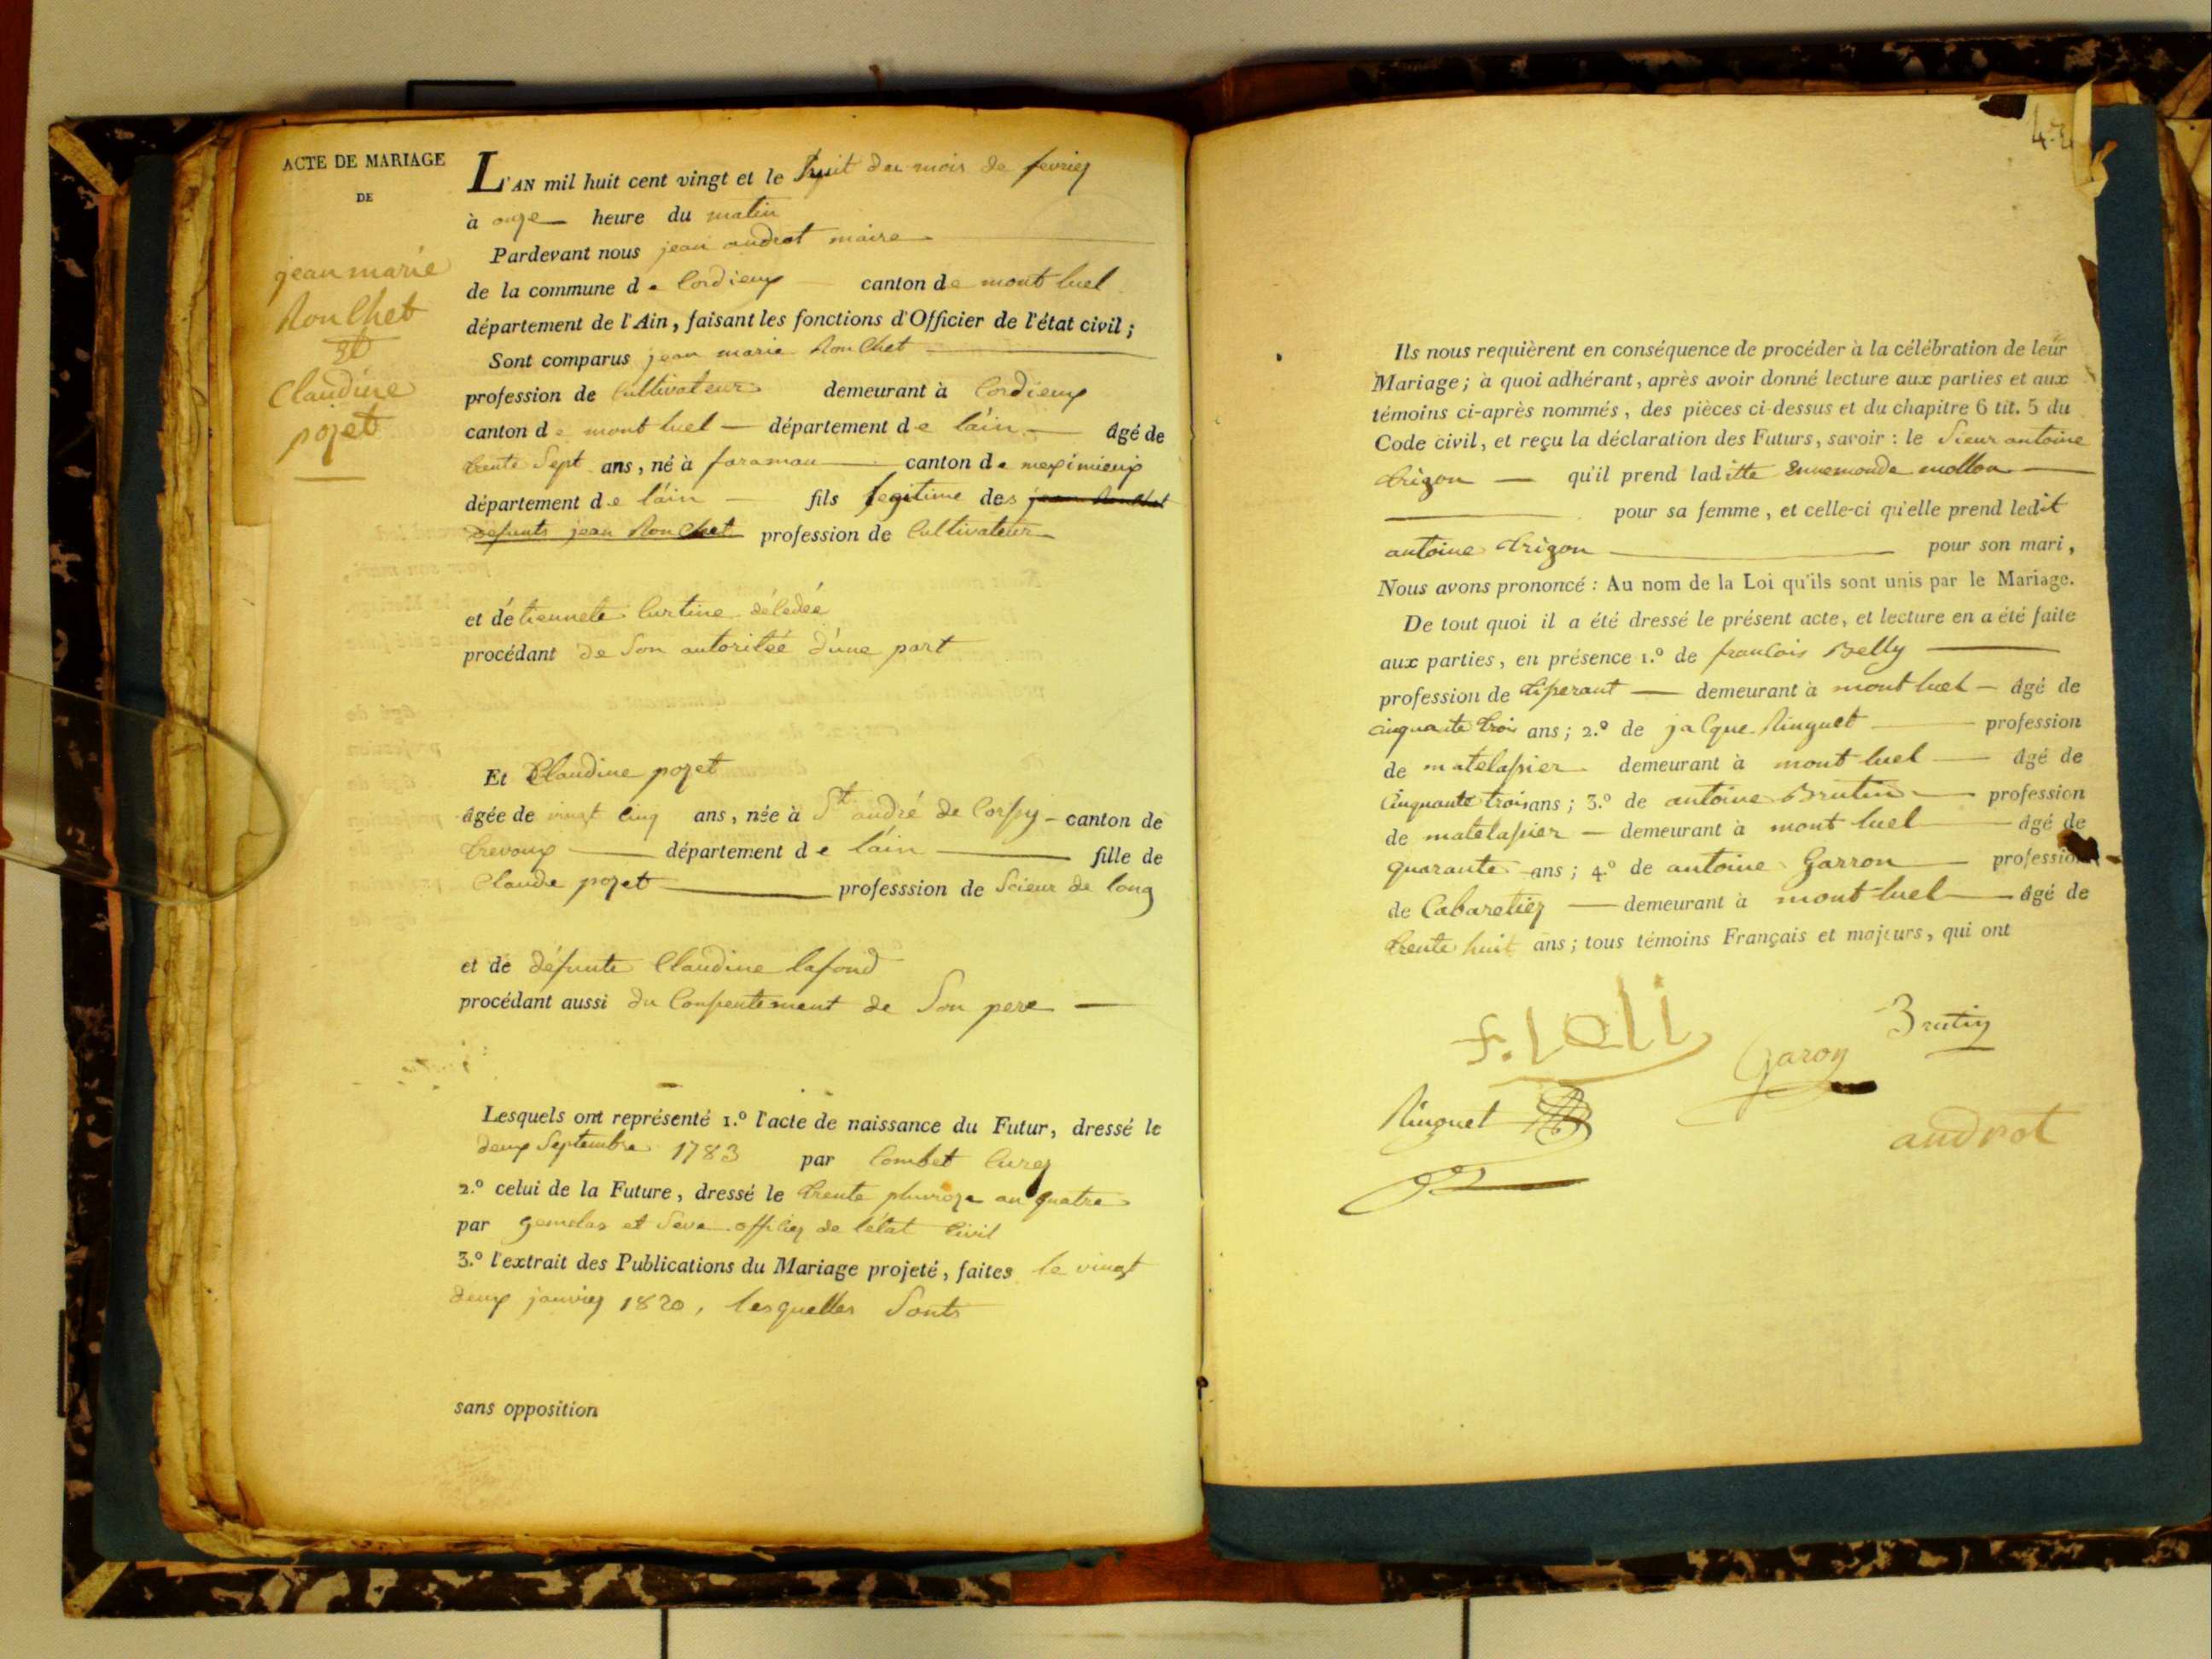 ACTE DE MARIAGE
DE
jean marie
Ronchet
et
Claudine
pozet
L'AN mil huit cent vingt et le huit du mois de fevrier
à onze heure du matin
Pardevant nous jean androt maire
de la commune de Cordieux canton de mont luel
département de l'Ain, faisant les fonctions d'Officier de l'état civil;
Sont comparus jean marie Ronchet
profession de Cultivateur demeurant à Cordieux
canton de mont luel département de lain âgé de
trente Sept ans, né à faraman canton de meximieux
département de l'ain fils legitime des jean Ronchet
defunts jean Ronchet profession de Cultivateur
et détiennete Curtine déledée
procédant de Son autoritée d'une part
Et Claudine pozet
âgée de vingt Cinq ans, née à St andré de Corsy canton de
trevoux département de l'ain fille de
Claude pozet professsion de Scieur de long
et de défunte Claudine lafond
procédant aussi du Consentement de Son pere
Lesquels ont représenté 1.º l'acte de naissance du Futur, dressé le
deux Septembre 1783 par Combet Curé
2.º celui de la Future, dressé le trente pluvioze an quatre
par et Seve officier de létat Civil
3.º l'extrait des Publications du Mariage projeté, faites le vingt
deux janvier 1820, lesquelles Sonts
sans opposition
42
Ils nous requièrent en conséquence de procéder à la célébration de leur
Mariage; à quoi adhérant, après avoir donné lecture aux parties et aux
témoins ci-après nommés, des pièces ci-dessus et du chapitre 6 tit. 5 du
Code civil, et reçu la déclaration des Futurs, savoir: le Sieur antoine
trigon qu'il prend laditte Ennemonde mollon
pour sa femme, et celle-ci qu'elle prend ledit
antoine trigon pour son mari,
Nous avons prononcé: Au nom de la Loi qu'ils sont unis par le Mariage.
De tout quoi il a été dressé le présent acte, et lecture en a été faite
aux parties, en présence 1.º de francois Belly
profession de tiserant demeurant à mont luel âgé de
cinquante trois ans; 2.º de jacque Ringuet profession
de matelassier demeurant à mont luel âgé de
Cinquante trois ans; 3.º de antoine Brutin profession
de matelassier demeurant à mont luel âgé de
quarante ans; 4.º de antoine Garron profession
de Cabaretier demeurant à mont luel âgé de
trente huit ans; tous témoins Français et majeurs, qui ont
Brutin
Garon
Ringuet
androt